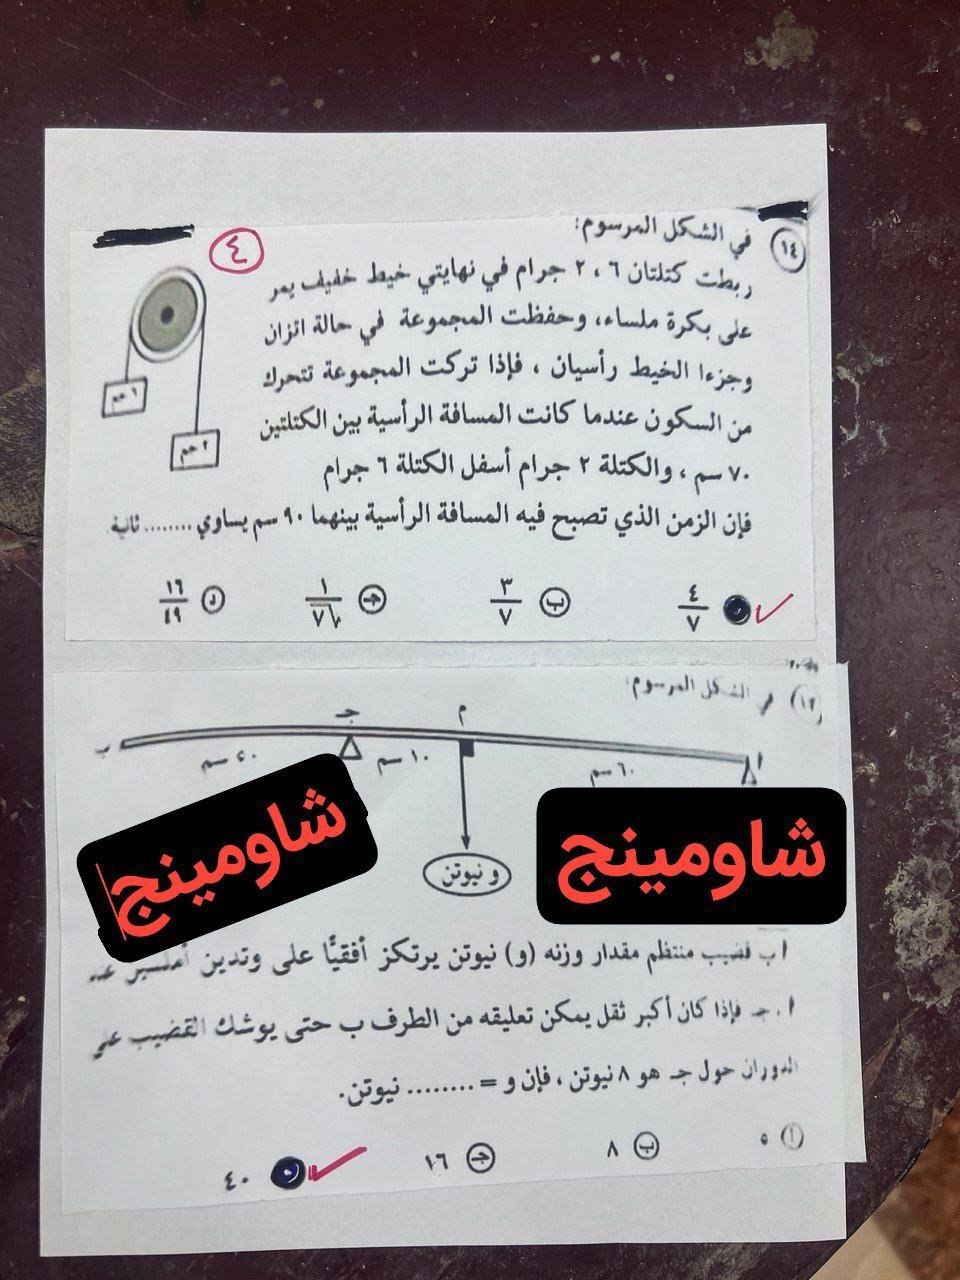 ٤
١٤ في الشكل المرسوم:
ربطت كتلتان ٦ ، ٢ جرام في نهايتي خيط خفيف يمر
على بكرة ملساء، وحفظت المجموعة في حالة اتزان
وجزءا الخيط رأسيان ، فإذا تركت المجموعة تتحرك
من السكون عندما كانت المسافة الرأسية بين الكتلتين
٧٠ سم ، والكتلة ٢ جرام أسفل الكتلة ٦ جرام
فإن الزمن الذي تصبح فيه المسافة الرأسية بينهما ٩٠ سم يساوي ........ ثانية.
٦ جم
٢ جم
٤/٧ ب ٣/٧ ج د ١٦/٤٩
في الشكل المرسوم:
ب جـ م أ
١٠ سم ٦٠ سم
و نيوتن
شاومينج
شاومينج
أ ب قضيب منتظم مقدار وزنه (و) نيوتن يرتكز أفقيًا على وتدين أملسين عند
أ ، جـ فإذا كان أكبر ثقل يمكن تعليقه من الطرف ب حتى يوشك القضيب على
الدوران حول جـ هو ٨ نيوتن ، فإن و = ........ نيوتن.
أ ٥ ب ٨ ج ١٦ ٤٠